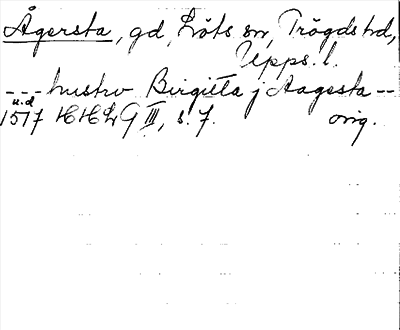 Ågersta, gd, Löts sn, Trögds hd,
Upps. l.
--- hustrv Birgitta j Aagesta --
u.d
1517 HHLG III, s. 7. orig.